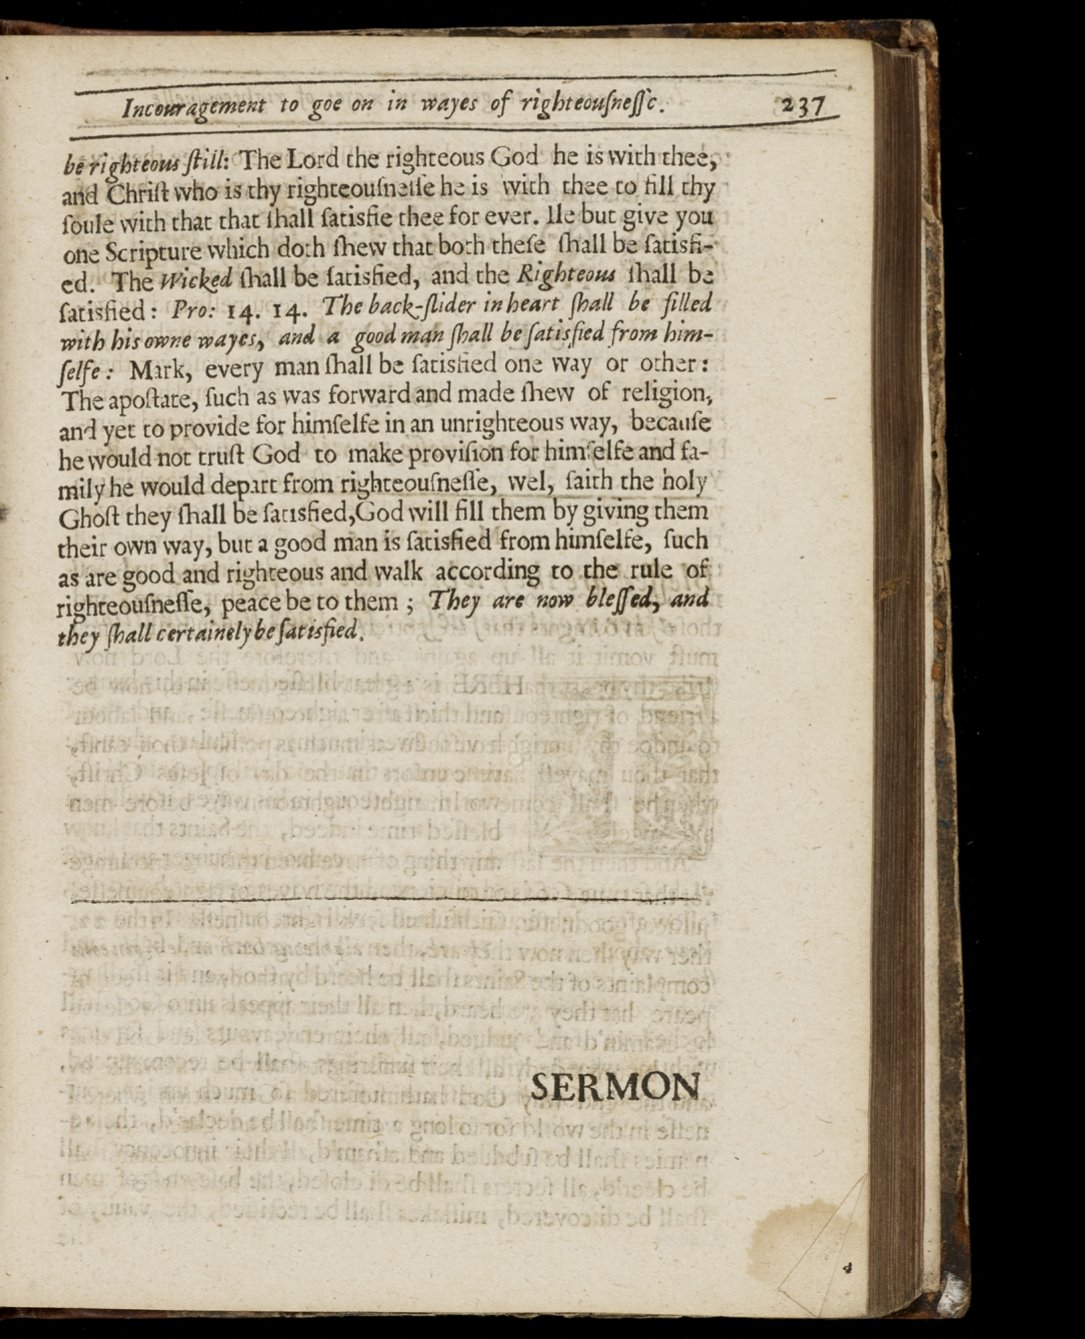 Incouragement to goe on in wayes of righteouſneſſe. 237
be righteous ſtill: The Lord the righteous God he is with thee,
and Chriſt who is thy righteouſneſſe he is with thee to fill thy
ſoule with that that ſhall ſatisfie thee for ever. Ile but give you
one Scripture which doth ſhew that both theſe ſhall be ſatisfi-
ed. The Wicked ſhall be ſatisfied, and the Righteous ſhall be
ſatisfied: Pro: 14. 14. The back-ſlider in heart ſhall be filled
with his owne wayes, and a good man ſhall be ſatisfied from him-
ſelfe: Mark, every man ſhall be ſatisfied one way or other:
The apoſtate, ſuch as was forward and made ſhew of religion,
and yet to provide for himſelfe in an unrighteous way, becauſe
he would not truſt God to make proviſion for himſelfe and fa-
mily he would depart from righteouſneſſe, wel, ſaith the holy
Ghoſt they ſhall be ſatisfied, God will fill them by giving them
their own way, but a good man is ſatisfied from himſelfe, ſuch
as are good and righteous and walk according to the rule of
righteouſneſſe, peace be to them; They are now bleſſed, and
they ſhall certainely be ſatisfied.
SERMON